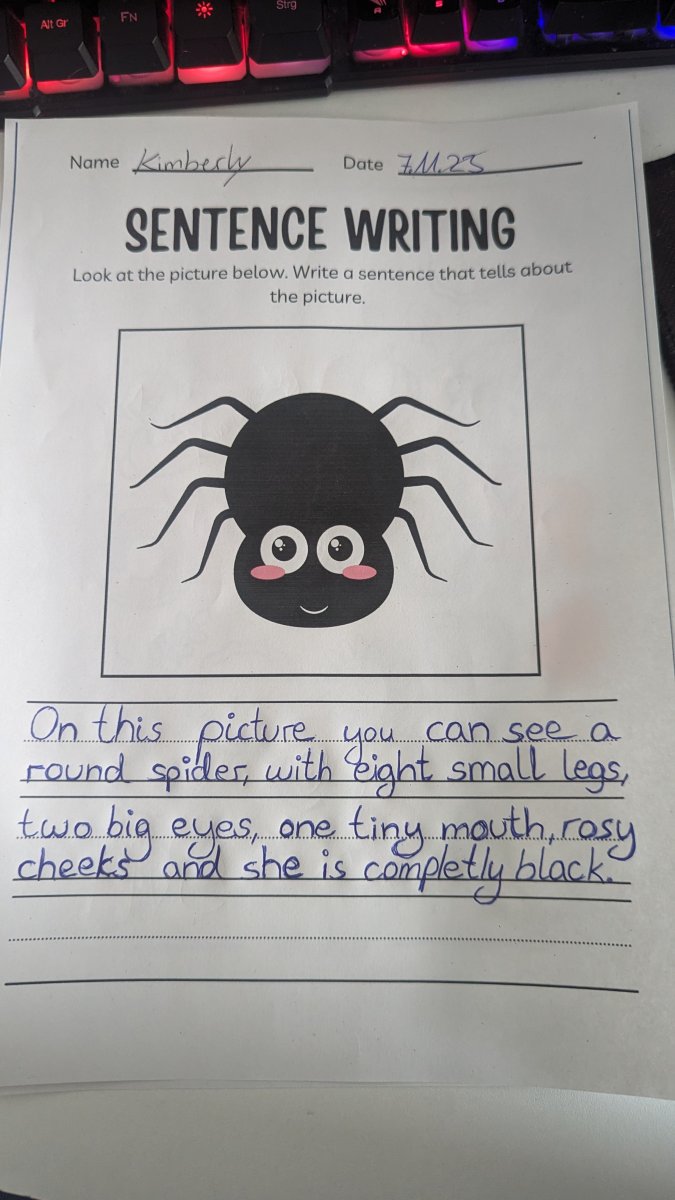 Alt Gr
FN
Strg
Name Kimberly Date 7.11.23
SENTENCE WRITING
Look at the picture below. Write a sentence that tells about
the picture.
On this picture you can see a
round spider, with eight small legs,
two big eyes, one tiny mouth, rosy
cheeks and she is completly black.